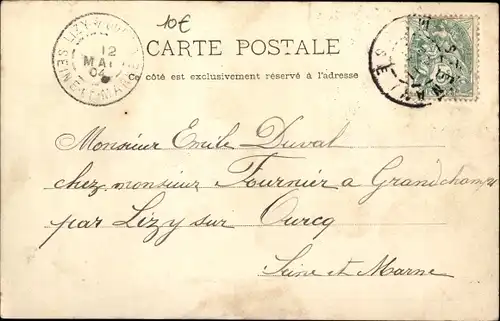 10€
LIZY-S-OURCQ
12
MAI
04
SEINE-ET-MARNE
CARTE POSTALE
Ce côté est exclusivement réservé à l'adresse
Monsieur Emile Duval
chez monsieur Fournier a Grandchamp
par Lizy sur Ourcq
Seine et Marne